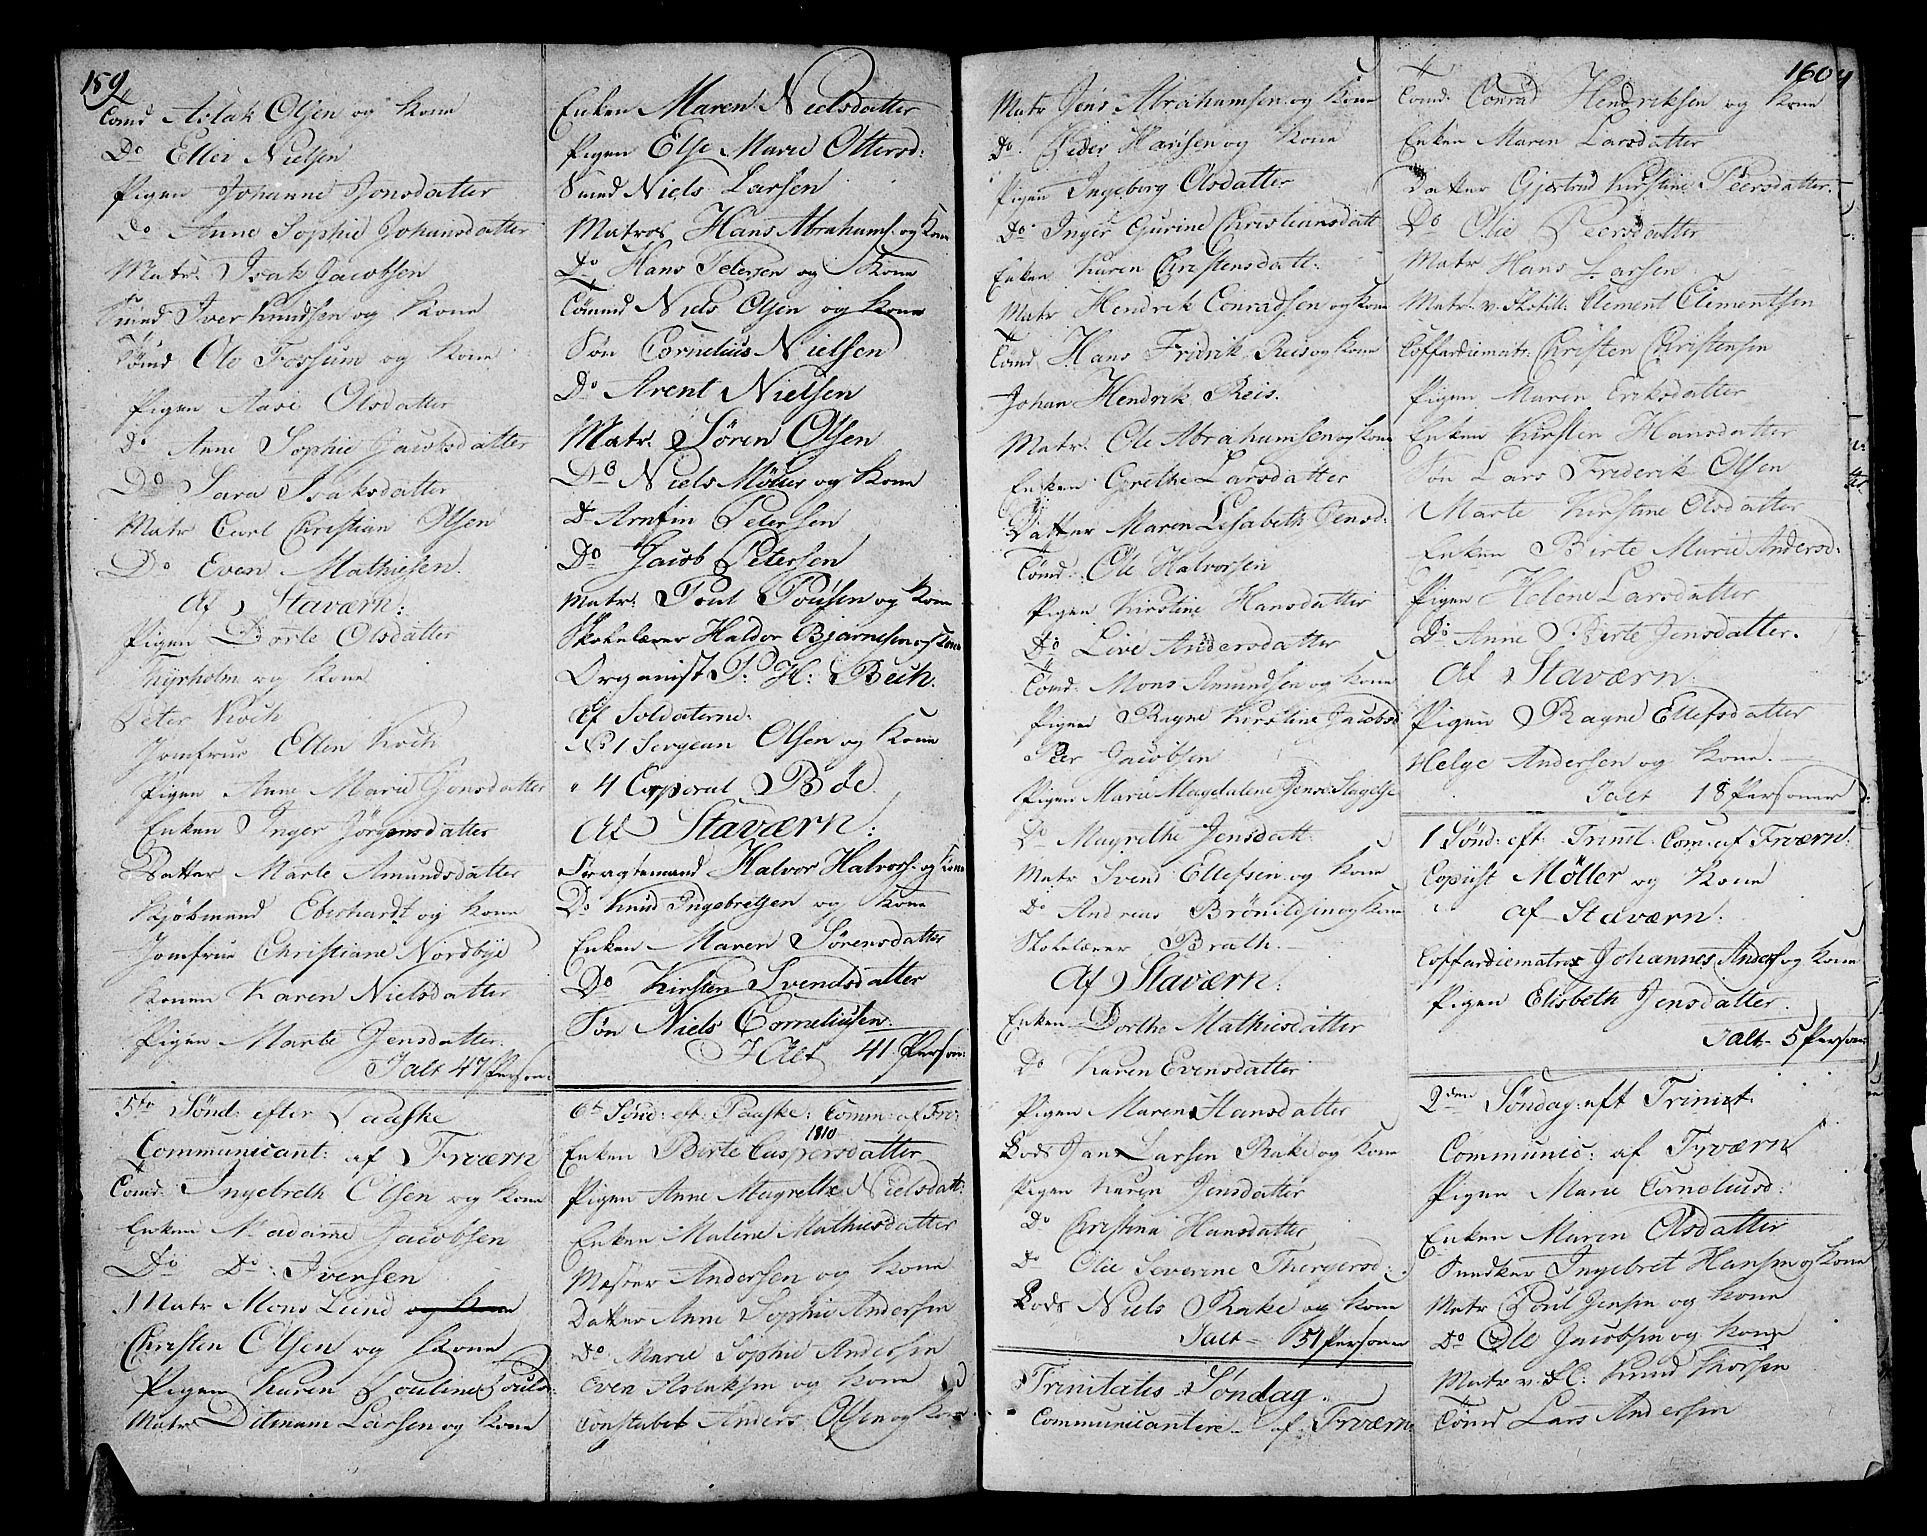 159
Tømd Aslak Olsen og Kone
Do Ellev Nielsen
Pigen Johanne Jonsdatter
Do Anne Sophie Johansdatter
Matr. Isak Jacobsen
Iver Knudsen og Kone
Tømd Ole Fossum og Kone
Pigen Aase Olsdatter
Do Anne Sophie Jacobsdatter
Do Sara Isaksdatter
Matr Carl Christian Olsen
Do Even Mathiesen
Af Staværn:
Pigen Dorte Olsdatter
Thyrholm og Kone
Peter Koch
Jomfrue Ellen Koch
Pigen Anne Marie Jonsdatter
Enken Inger Jörgensdatter
Datter Marte Amundsdatter
Kjøbmand Eberhardt og Kone
Jomfrue Christiane Nordbye
Konen Karen Nielsdatter
Pigen Marte Jensdatter
Ialt 47 Person:
5te Sønd: efter Paaske
Communicant: af Frværn
Tømd. Ingebreth Olsen og Kone
Enken Madame Jacobsen
Do Do: Iversen
Matr Mons Lund og Kone
Christen Olsen og Kone
Pigen Karen Pouline Pouls:
Matr. Ditmam Larsen og Kone
Enken Maren Nielsdatter
Pigen Else Marie Ottersd:
Niels Larsen
Matros Hans Abrahams. og Kone
Do Hans Petersen og Kone
Tømd Niels Olsen og Kone
Søn Cornelius Nielsen
Do Arent Nielsen
Matr. Søren Olsen
Do Niels Möller og Kone
D Arnfin Petersen
Do Jacob Petersen
Matr. Poul Poulsen og Kone
Skolelærer Haldor Bjørnesen og Kone
Organist P. H: Bech.
Af Soldaterne:
No 1 Sergean Olsen og Kone
" 4 Corporal Böe
Af Staværn:
Dragtemand Halvor Halvors. og Kone
Do Knud Ingebretsen og Kone
Enken Maren Sörensdatter
Do Kirsten Svendsdatter
Søn Niels Corneliusen.
I Alt 41 Person:
6te Sönd: eft: Paaske: Comm: af Frv:
1810
Enken Birte Caspersdatter
Pigen Anne Magrethe Nielsdatt:
Enken Malene Mathiesdatter
Mester Andersen og Kone
Datter Anne Sophie Andersen
Do Marie Sophie Andersen
Even Aslaksen og Kone
Constabel Anders Olsen og Kone
160
Matr Jens Abrahamsen og Kone
Do Peder Hansen og Kone
Pigen Ingeborg Olsdatter
Do Inger Gurine Christiansdatt
Enken Karen Christensdatt:
Matr Hendrik Conradsen og Kone
Tømd Hans Fridrik Reis og Kone
Johan Hendrik Reis.
Matr. Ole Abrahamsen og Kone
Enken Grethe Larsdatter
Datter Maren Lisabeth Jensd:
Tømd. Ole Halvorsen
Pigen Kirstine Hansdatter
Do Live Andersdatter
Tømd. Mons Amundsen og Kone
Pigen Ragne Kirstine Jacobsd
Peer Jacobsen
Pigen Marie Magdalene Jensd Slagelse
Do Magrethe Jensdatt.
Matr Svend Ellefsen og Kone
Do Andreas Brönildsen og Kone
Skolelærer Brath.
Af Staværn:
Enken Dorthe Mathiesdatter
Do Karen Evensdatter
Pigen Maren Hansdatter
Lods Jan Larsen Rake og Kone
Pigen Karen Jensdatter
Do Christina Hansdatter
Do Olie Severine Thergersd:
Lods Niels Rake og Kone
Ialt 51 Personer
Trinitatis Söndag.
Communicantere af Frværn
Tømd: Conrad Hendriksen og Kone
Enken Maren Larsdatter
Datter Gjertrud Kirstine Peersdatter.
Do Olie Peersdatter
Matr Hans Larsen
Matr: v. Skibili: Clement Clementsen
Coffardiematr. Christen Christensen
Pigen Maren Eriksdatter
Enken Kirsten Hansdatter
Søn Lars Frederik Olsen
Marte Kirstine Olsdatter
Enken Birte Marie Andersd.
Pigen Helene Larsdatter
Do Anne Birte Jensdatter.
Af Staværn
Pigen Ragne Ellefsdatter
Helge Andersen og Kone.
Ialt 18 Personer
1 Sønd: eft. Trinit Com. af Frværn:
Copiist Möller og Kone
af Staværn:
Coffardiematros Johannes Anders og Kone
Pigen Elisbeth Jensdatter.
Ialt 5 Person
2den Söndag eft Trinit.
Communic: af Frværn
Pigen Marie Corneliusd:
Enken Maren Olsdatter
Snedker Ingebret Hansen og Kone
Matr Poul Jensen og Kone
Do Ole Jacobsen og Kone
Matr v. Knud
Tømd Lars Andersen